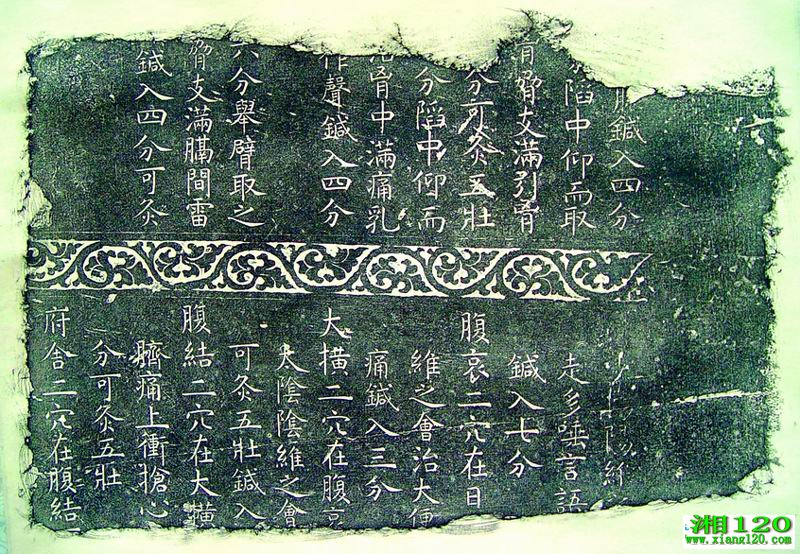 鍼入四分
陷中仰而取
脅支滿引胷
分可灸五壯
分陷中仰而
胷中滿痛乳
作聲鍼入四分
六分舉臂取之
脅支滿膈間雷
鍼入四分可灸
陽維
走多唾言語
鍼入七分
腹哀二穴在日
維之會治大便
痛鍼入三分
大橫二穴在腹哀
太陰陰維之會
可灸五壯鍼入
腹結二穴在大橫
臍痛上衝搶心
分可灸五壯
府舍二穴在腹結
湘120
www.xiang120.com